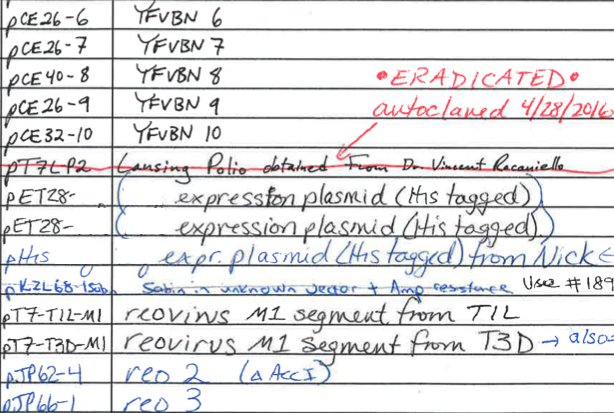 pCE26-6 YFVBN 6
pCE26-7 YFVBN 7
pCE40-8 YFVBN 8
•ERADICATED•
pCE26-9 YFVBN 9
autoclaved 4/28/2016
pCE32-10 YFVBN 10
pT7LP2 Lansing Polio obtained From Dr. Vincent Racaniello
pET28- (expression plasmid (His tagged))
pET28- (expression plasmid (His tagged))
pHis expr. plasmid (His tagged) from Nick E
Sabin in unknown vector + Amp resistance Use #189
pT7-T1L-M1 reovirus M1 segment from T1L
pT7-T3D-M1 reovirus M1 segment from T3D → also
pJP62-4 reo 2 (ΔAccI)
pJP66-1 reo 3